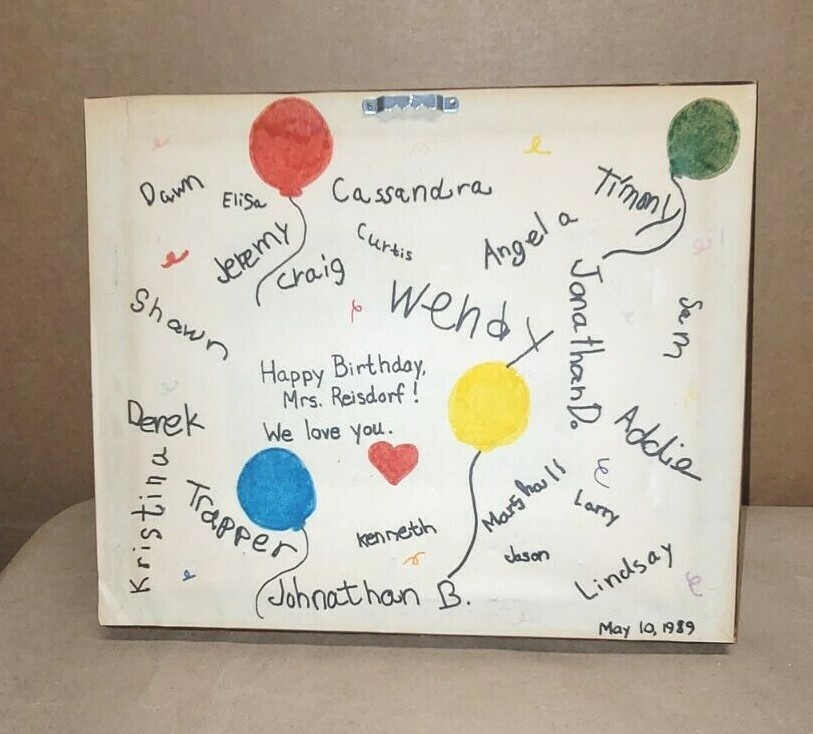 Dawn
Elisa
Cassandra
Timmy
Jeremy
Craig
Curtis
Angela
Shawn
Wendy
Jonathan D.
Sam
Happy Birthday,
Mrs. Reisdorf!
We love you.
Derek
Addie
Kristina
Trapper
Kenneth
Marshall
Larry
Jason
Lindsay
Johnathan B.
May 10, 1989